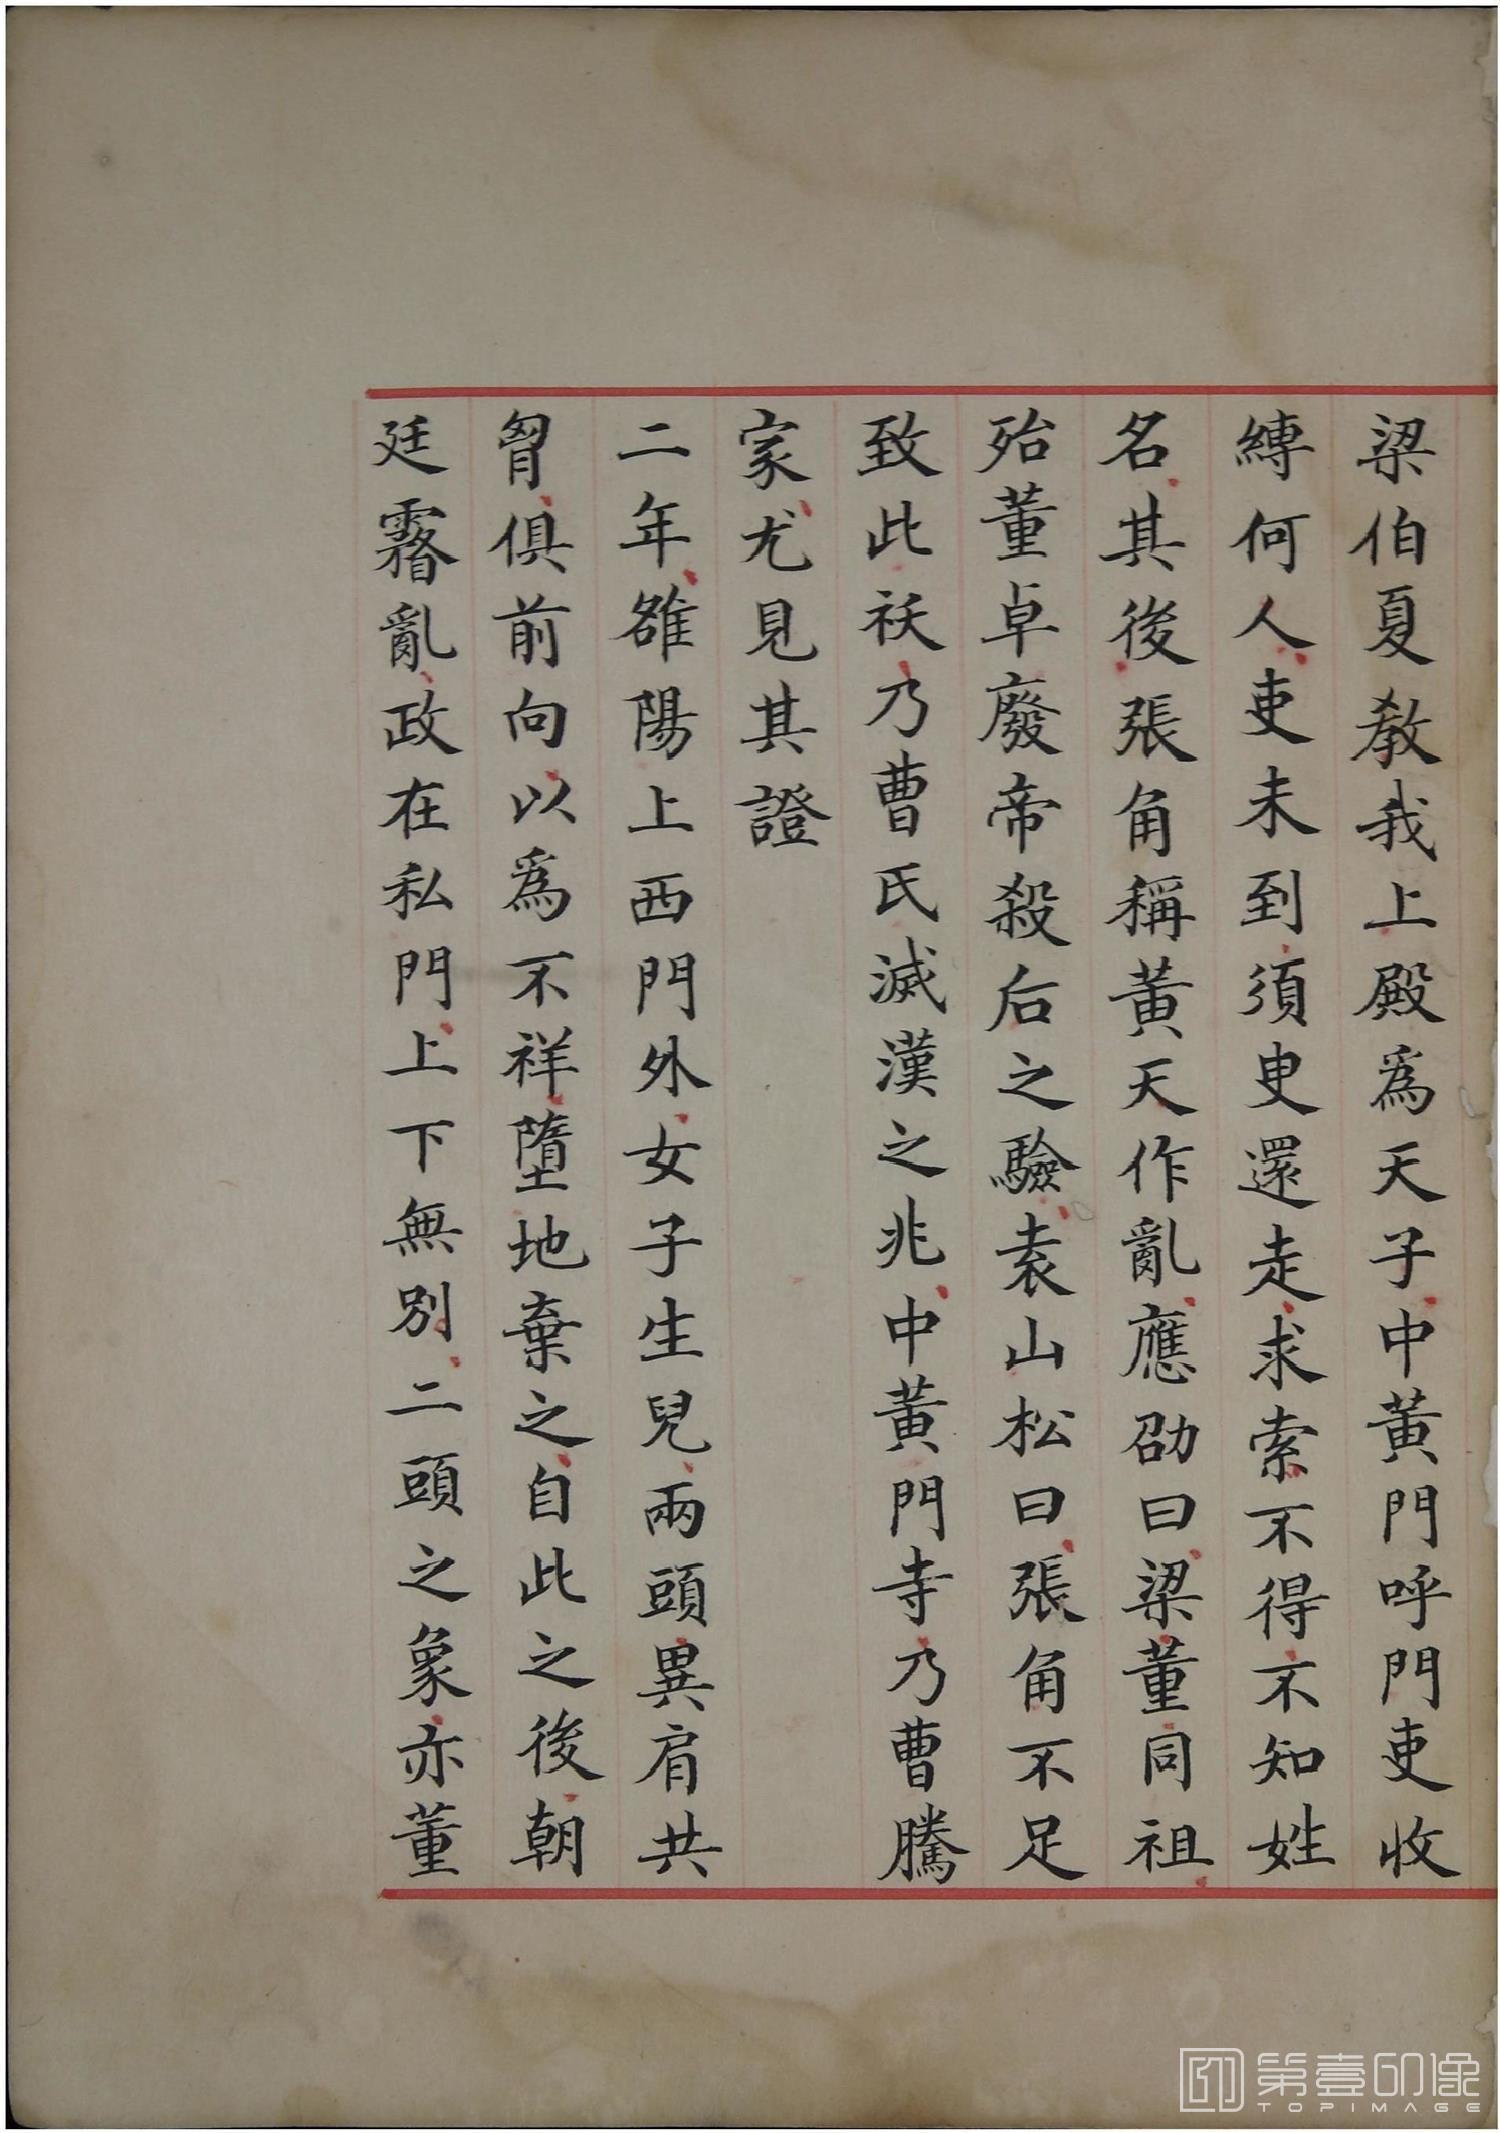 梁伯夏教我上殿爲天子中黃門呼門吏收
縛何人吏未到須臾還走求索不得不知姓
名其後張角稱黃天作亂應劭曰梁董同祖
殆董卓廢帝殺后之驗袁山松曰張角不足
致此祅乃曹氏滅漢之兆中黃門寺乃曹騰
家尤見其證
二年雒陽上西門外女子生兒兩頭異肩共
胷俱前向以爲不祥墮地棄之自此之後朝
廷霿亂政在私門上下無別二頭之象亦董
第壹印像
TOPIMAGE